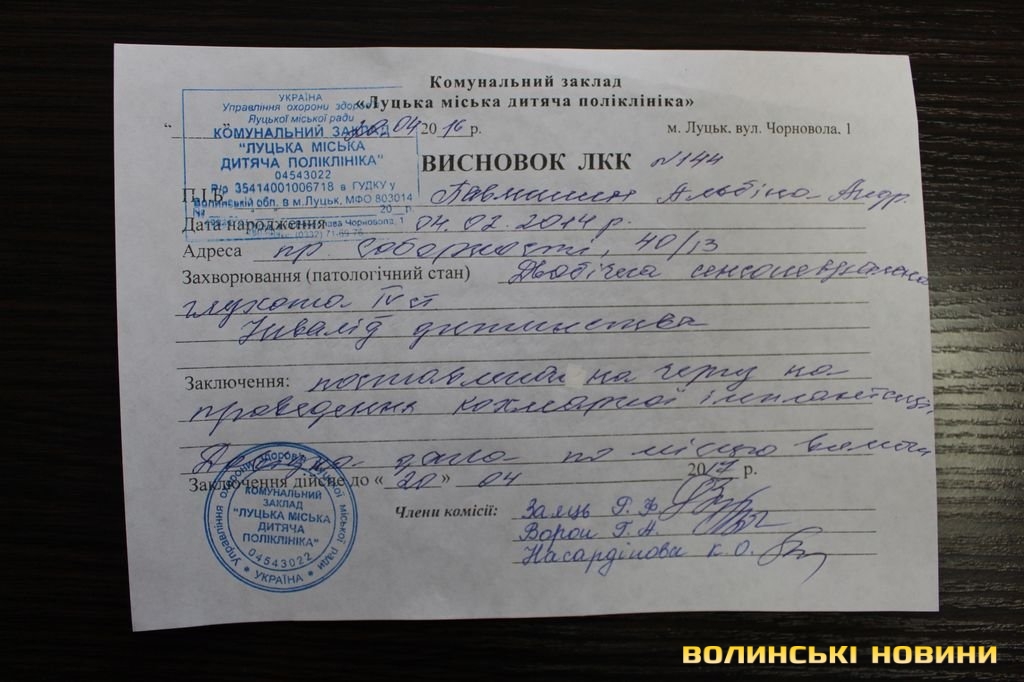 Комунальний заклад
«Луцька міська дитяча поліклініка»
УКРАЇНА
Управління охорони здоров
Луцької міської ради
КОМУНАЛЬНИЙ ЗАКЛАД
"ЛУЦЬКА МІСЬКА
ДИТЯЧА ПОЛІКЛІНІКА"
04543022
Р/р 35414001006718 в ГУДКУ у
Волинській обл. в м.Луцьк, МФО 803014
" 20.04 2016 р.
м. Луцьк, вул. Чорновола, 1
ВИСНОВОК ЛКК №144
П.І.Б. Альбіна Андр.
Дата народження 04.02.2014 р.
Адреса пр. Соборності, 40/13
Захворювання (патологічний стан) Двобічна сенсоневральна
глухота IV ст
Інвалід дитинства
Заключення: поставлена на чергу на
проведення кохлеарної імплантації,
Довідка дана по місцю вимоги
Заключення дійсне до « 20 » 04 2017 р.
Члени комісії: Заяць Г. Ф
Ворон Г. А.
Насардінова К. О.
Управління охорони здоров'я Луцької міської ради
КОМУНАЛЬНИЙ
ЗАКЛАД
"ЛУЦЬКА МІСЬКА
ДИТЯЧА
ПОЛІКЛІНІКА"
04543022
* УКРАЇНА *
ВОЛИНСЬКІ НОВИНИ